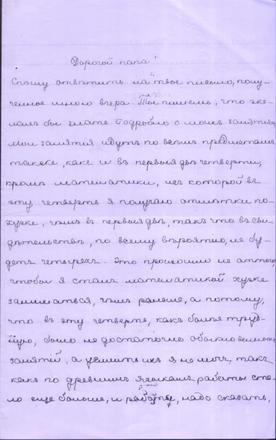 Дорогой папа!
Спѣшу отвѣтить на твое письмо, полу-
ченное мною вчера. Ты пишешь, что же-
лалъ бы знать подробно о моихъ занятіяхъ.
Мои занятія идутъ по всѣмъ предметамъ
также, какъ и въ первыя двѣ четверти,
кромѣ математики, изъ которой въ
эту четверть я получаю отмѣтки по-
хуже, чѣмъ въ первыя двѣ, такъ что въ сви-
дѣтельствѣ, по всему вѣроятію, не бу-
детъ четырехъ. Это произошло не оттого,
чтобы я сталъ математикой хуже
заниматься, чѣмъ раньше, а потому,
что въ эту четверть, какъ болѣе труд-
ную, было не достаточно обыкновенныхъ
занятій, а усилить ихъ я не могъ, такъ
какъ по древнимъ языкамъ работы ста-
ло еще больше, и работу, надо сказать,